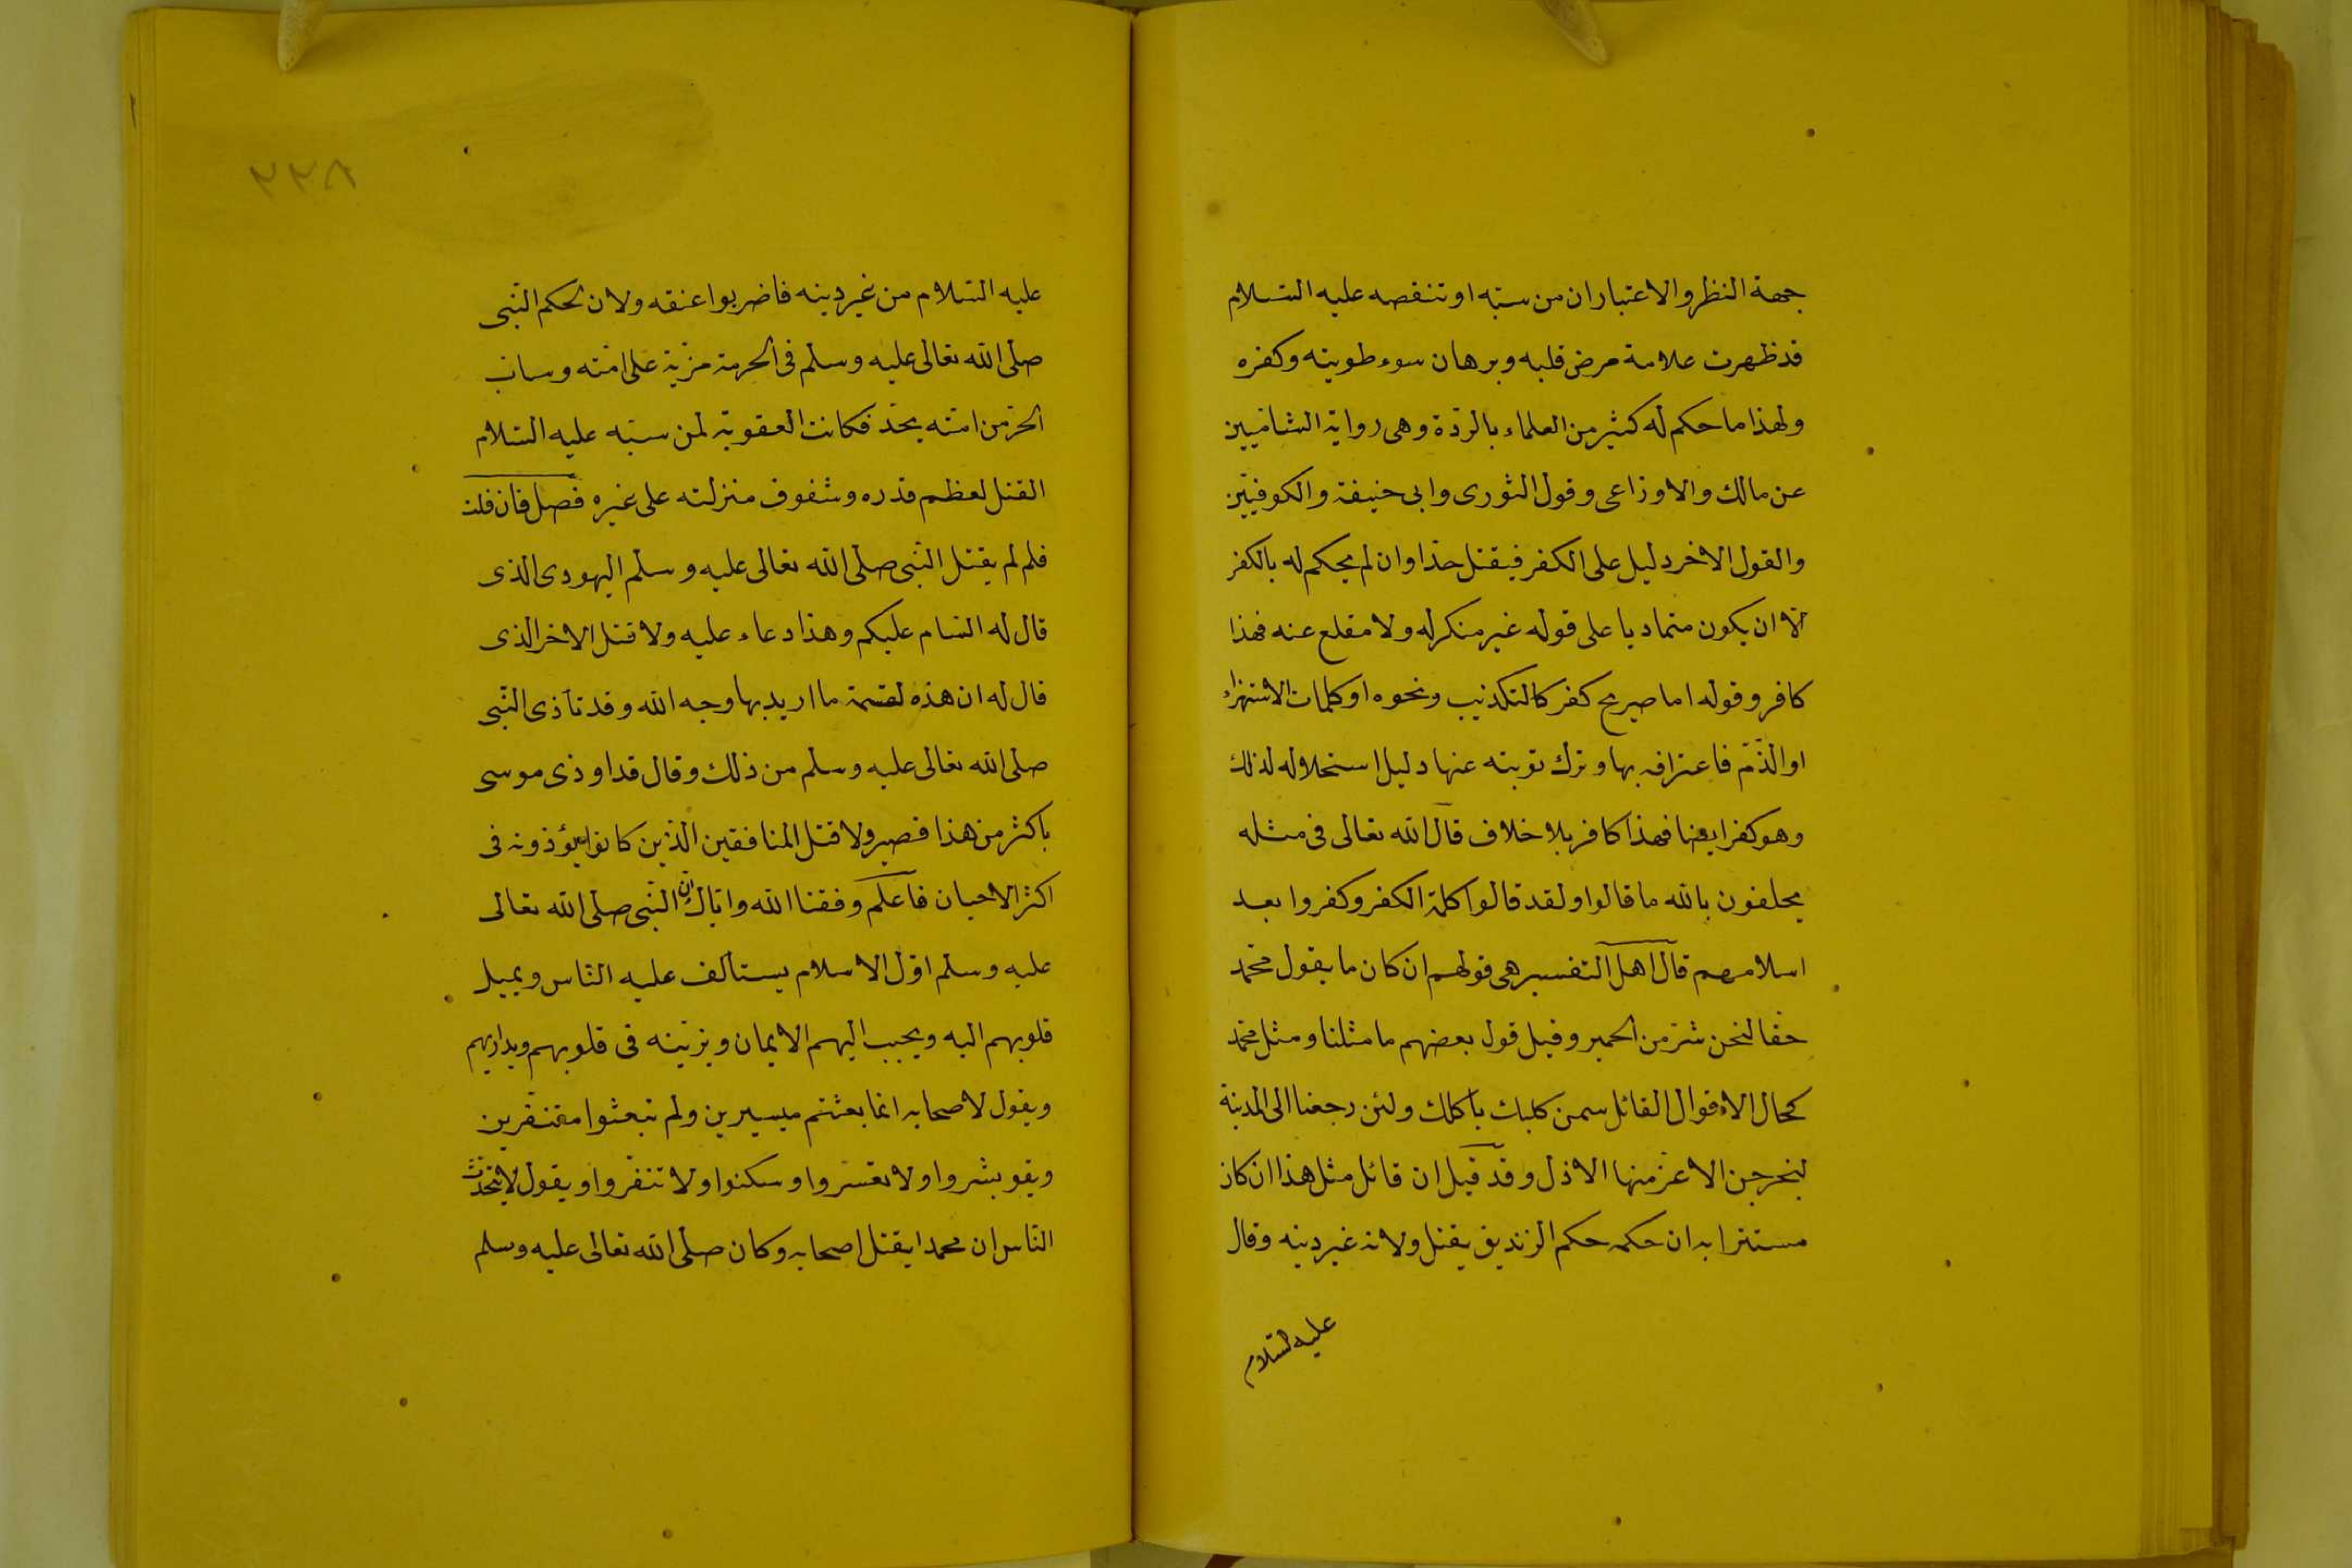 جهة النظر والاعتباران من سبّه او تنقصه عليه السّلام
قد ظهرت علامة مرض قلبه وبرهان سوء طويته وكفره
ولهذا ما حكم له كثير من العلماء بالردّة وهى رواية الشاميين
عن مالك والاوزاعى وقول الثورى وابى حنيفة والكوفيّين
والقول الاخر دليل على الكفر فيقتل حدّا وان لم يحكم له بالكفر
الّا ان يكون متماديا على قوله غير منكر له ولا مقلع عنه فهذا
كافر وقوله اما صريح كفر كالتكذيب ونحوه او كلمات الاستهزاء
او الذّمّ فاعترافه بها وترك توبته عنها دليل استحلاله لذلك
وهو كفر ايضا فهذا كافر بلا خلاف قال الله تعالى فى مثله
يحلفون بالله ما قالوا ولقد قالوا كلمة الكفر وكفروا بعد
اسلامهم قال اهل التفسير هى قولهم ان كان ما يقول محمّد
حقا لنحن شرّ من الحمير وقيل قول بعضهم ما مثلنا ومثل محمّد
كحال الاقوال القائل سمن كلبك ياكلك ولئن رجعنا الى المدينة
ليخرجن الاعزّ منها الاذل وقد قيل ان قائل مثل هذا ان كان
مستترا به ان حكمه حكم الزنديق يقتل ولانه غير دينه وقال
عليه السّلام
٢٢٨
عليه السّلام من غير دينه فاضربوا عنقه ولان لحكم النّبى
صلّى الله تعالى عليه وسلّم فى الحرمة مزيّة على امّته وساب
الحرّ من امّته يحدّ فكانت العقوبة لمن سبّه عليه السّلام
القتل لعظم قدره وشفوف منزلته على غيره فصل فان قلت
فلم لم يقتل النّبى صلّى الله تعالى عليه وسلّم اليهودى الذى
قال له السّام عليكم وهذا دعاء عليه ولا قتل الاخر الذى
قال له ان هذه لقسمة ما اريد بها وجه الله وقد تأذى النّبى
صلّى الله تعالى عليه وسلم من ذلك وقال قد اوذى موسى
باكثر من هذا فصبر ولا قتل المنافقين الّذين كانوا يؤذونه فى
اكثر الاحيان فاعلم وفقنا الله وايّاك ان النّبى صلّى الله تعالى
عليه وسلم اوّل الاسلام يستألف عليه النّاس ويميل
قلوبهم اليه ويحبب اليهم الايمان ويزيّنه فى قلوبهم ويداريهم
ويقول لاصحابه انما بعثتم ميسيرين ولم تبعثوا مفتنفّرين
ويقو بشروا ولا تعسّروا وسكنوا ولا تنفّروا ويقول لا يتحدّث
النّاس ان محمدا يقتل اصحابه وكان صلّى الله تعالى عليه وسلم